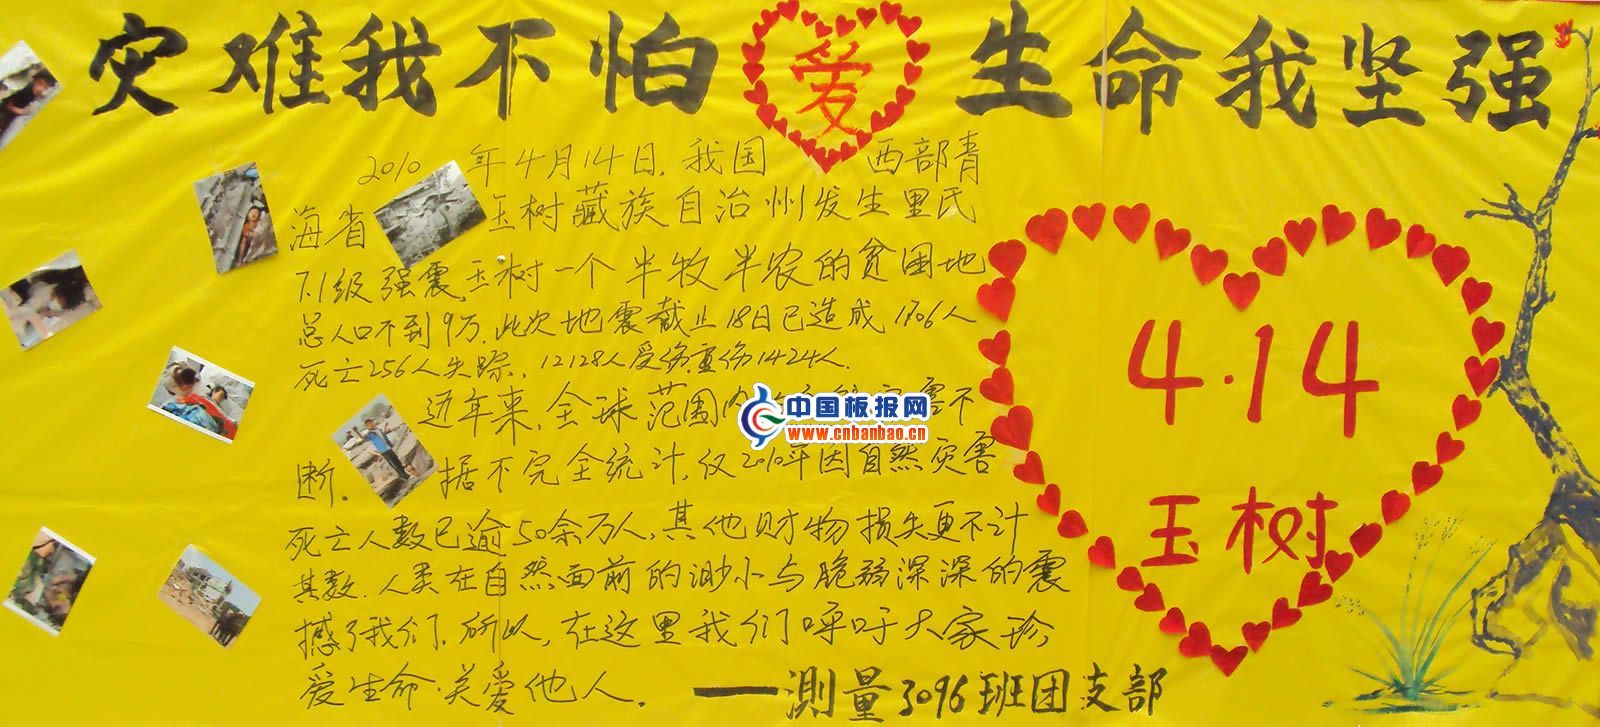 灾难我不怕 爱 生命我坚强
2010年4月14日,我国西部青
海省玉树藏族自治州发生里氏
7.1级强震,玉树一个半牧半农的贫困地
总人口不到9万,此次地震截止18日已造成1706人
死亡256人失踪,12128人受伤重伤1424人.
近年来,全球范围内 害不
断. 据不完全统计,仅2010年因自然灾害
死亡人数已逾50余万人,其他财物损失更不计
其数.人类在自然面前的渺小与脆弱深深的震
撼了我们.所以,在这里我们呼吁大家珍
爱生命.关爱他人.
——测量3096班团支部
4.14
玉树
中国板报网
www.cnbanbao.cn